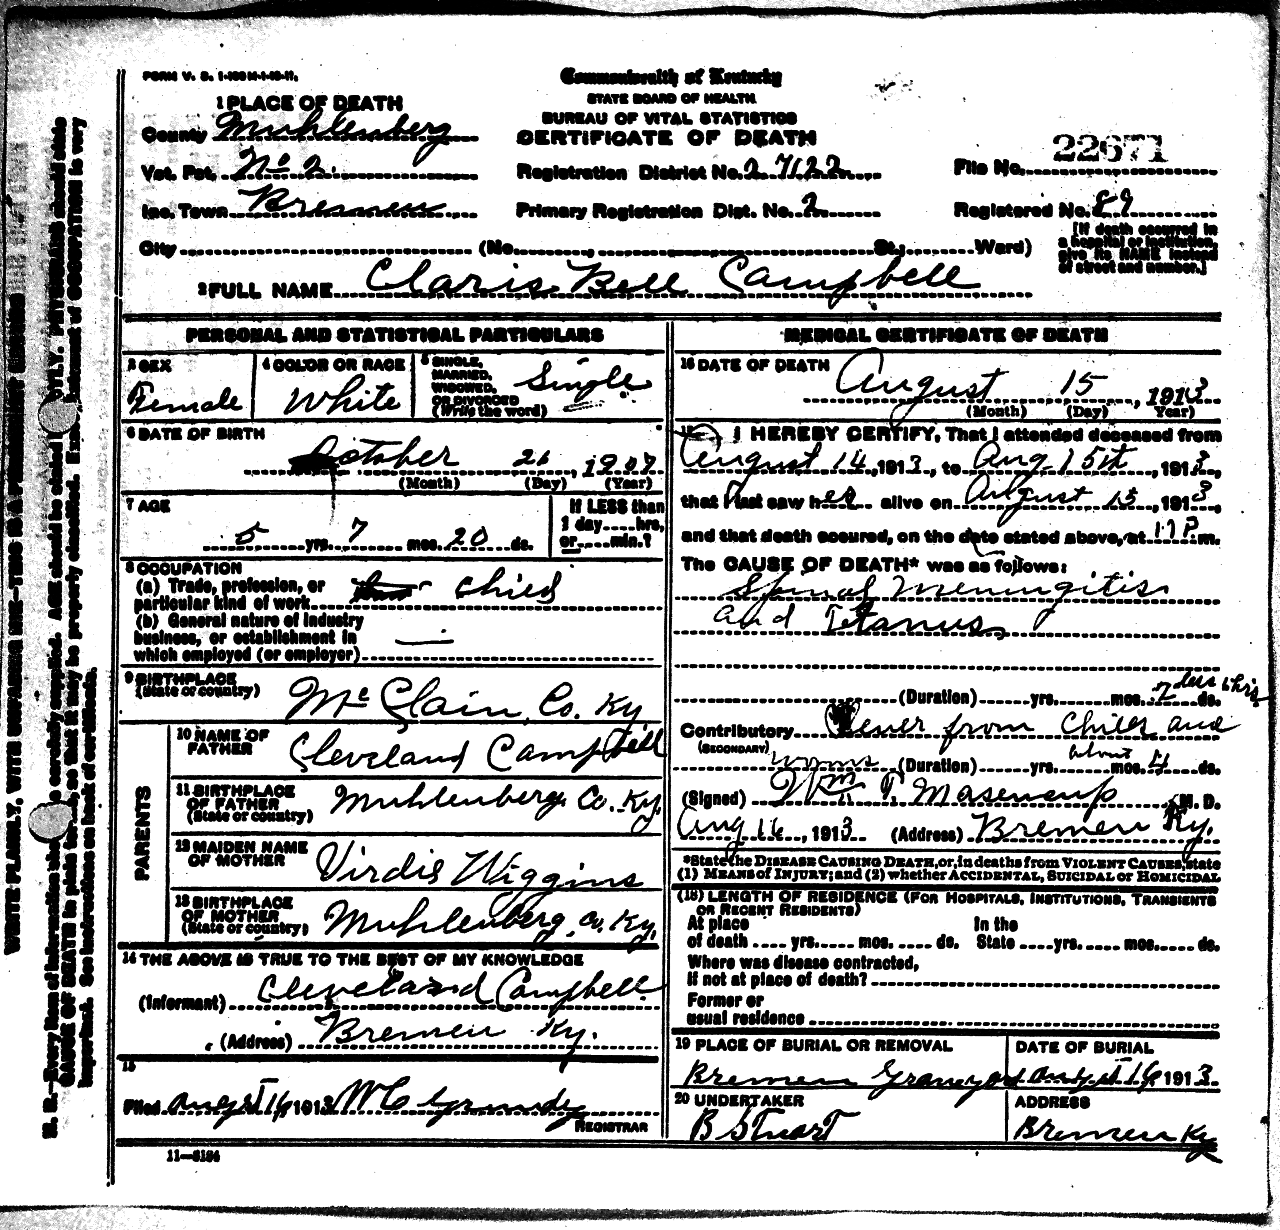 FORM V. S. 1-
Commonwealth of Kentucky
STATE BOARD OF HEALTH
BUREAU OF VITAL STATISTICS
CERTIFICATE OF DEATH
1 PLACE OF DEATH
County Muhlenberg
Vot. Pct. No 2.
Inc. Town Bremen
City (No. , St., Ward)
Registration District No. 27122
Primary Registration Dist. No. 2
File No. 22671
Registered No. 89
[If death occurred in
a hospital or institution,
give its NAME instead
of street and number.]
2 FULL NAME Claris Bell Campbell
PERSONAL AND STATISTICAL PARTICULARS
3 SEX
Female
4 COLOR OR RACE
White
5 SINGLE,
MARRIED,
WIDOWED,
OR DIVORCED
(Write the word)
Single
6 DATE OF BIRTH
October 21, 1907
(Month) (Day) (Year)
7 AGE
5 yrs. 7 mos. 20 ds.
If LESS than
1 day....hrs.
or.....min.?
8 OCCUPATION
(a) Trade, profession, or
particular kind of work child
(b) General nature of industry
business, or establishment in
which employed (or employer)
9 BIRTHPLACE
(State or country) McClain, Co. Ky.
PARENTS
10 NAME OF
FATHER Cleveland Campbell
11 BIRTHPLACE
OF FATHER
(State or country) Muhlenberg, Co. Ky.
12 MAIDEN NAME
OF MOTHER Virdis Wiggins
13 BIRTHPLACE
OF MOTHER
(State or country) Muhlenberg, Co. Ky.
14 THE ABOVE IS TRUE TO THE BEST OF MY KNOWLEDGE
(Informant) Cleveland Campbell
(Address) Bremen Ky.
15
Filed August 16, 1913 W C Grundy
REGISTRAR
11—8184
MEDICAL CERTIFICATE OF DEATH
16 DATE OF DEATH
August 15, 1913
(Month) (Day) Year)
17 I HEREBY CERTIFY, That I attended deceased from
August 14, 1913, to Aug. 15st, 1913,
that I last saw her alive on August 15, 1913,
and that death occured, on the date stated above, at 11 P. m.
The CAUSE OF DEATH* was as follows:
Spinal Meningitis
and Tetanus
(Duration) yrs. mos. 2 ds.
Contributory Fever from Chills and
(SECONDARY) worms (Duration) yrs. mos. about 4 ds.
(Signed) Wm. T. Masencup M. D.
Aug 16, 1913 (Address) Bremen Ky.
*State the DISEASE CAUSING DEATH, or, in deaths from VIOLENT CAUSES, state
(1) MEANS OF INJURY; and (2) whether ACCIDENTAL, SUICIDAL or HOMICIDAL
(18) LENGTH OF RESIDENCE (FOR HOSPITALS, INSTITUTIONS, TRANSIENTS
OR RECENT RESIDENTS)
At place In the
of death yrs. mos. ds. State yrs. mos. ds.
Where was disease contracted,
if not at place of death?
Former or
usual residence
19 PLACE OF BURIAL OR REMOVAL
Bremen Graveyard
DATE OF BURIAL
August 16, 1913
20 UNDERTAKER
B Stuart
ADDRESS
Bremen Ky
WRITE PLAINLY, WITH UNFADING INK—THIS IS A PERMANENT RECORD
N. B.—Every item of information carefully supplied. AGE should be stated PHYSICIANS should state
CAUSE OF DEATH in plain so that it may be properly classified. statement of OCCUPATION is very
important. See instructions on back of certificate.